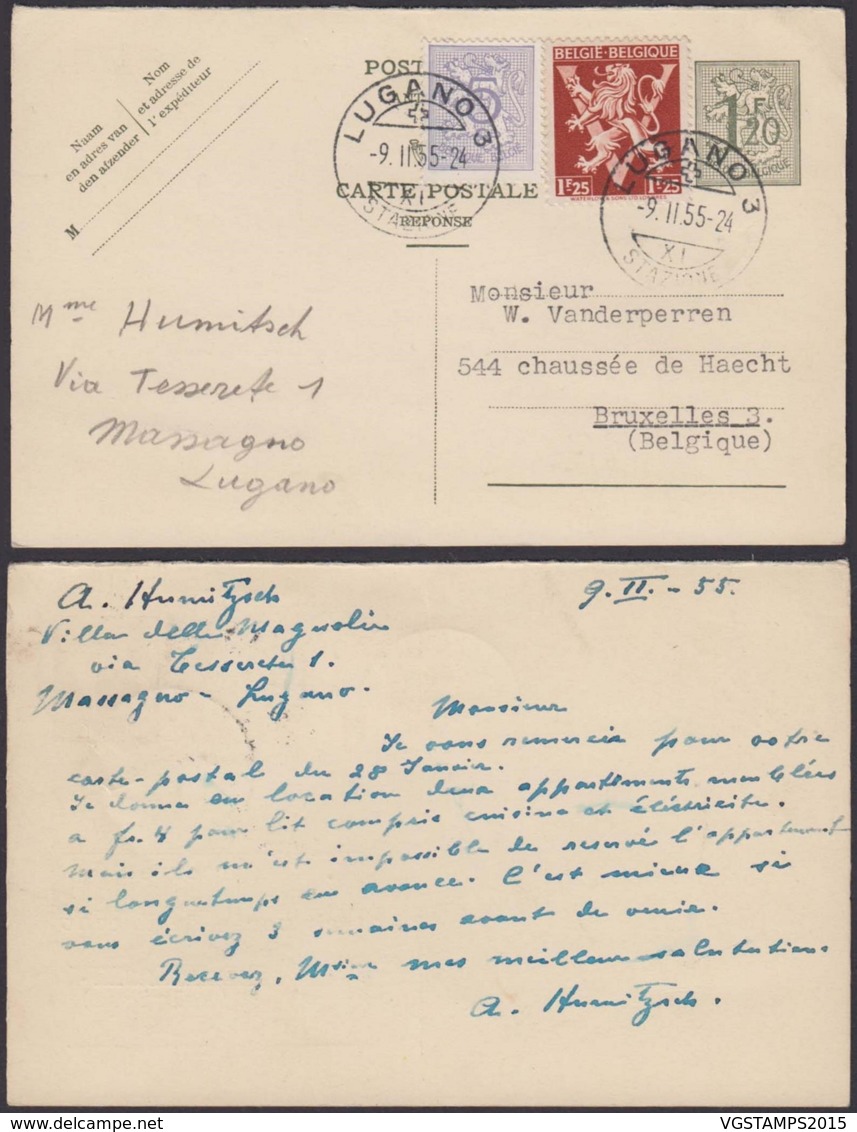 Nom
et adresse de
l'expéditeur
Naam
en adres van
den afzender
M
POST
CARTE POSTALE
REPONSE
5
BELGIE-BELGIQUE
1F25 1F25
WATERLOW & SONS LTD LONDRES
1F20
BELGIQUE
LUGANO 3
-9.II.55-24
XI
STAZIONE
LUGANO 3
-9.II.55-24
XI
STAZIONE
Mme Humitsch
Via Tesserete 1
Massagno
Lugano
Monsieur
W. Vanderperren
544 chaussée de Haecht
Bruxelles 3.
(Belgique)
A. Humitzsch
9.II.-55.
Villa delle Magnolie
via Tesserete 1.
Massagno - Lugano.
Monsieur
Je vous remercie pour votre
carte-postal du 28 Janvier.
Je donne en location deux appartements meublées
a fr. 4 pour lit compris cuisine et éléctricite.
Mais ils m'est impossible de reservé l'appartement
si longuetemps en avance. C'est mieux si
vous écrivez 3 semaines avant de venir.
Recevez, Msieur mes meilleur salutations
A. Humitzsch.
VGSTAMPS2015